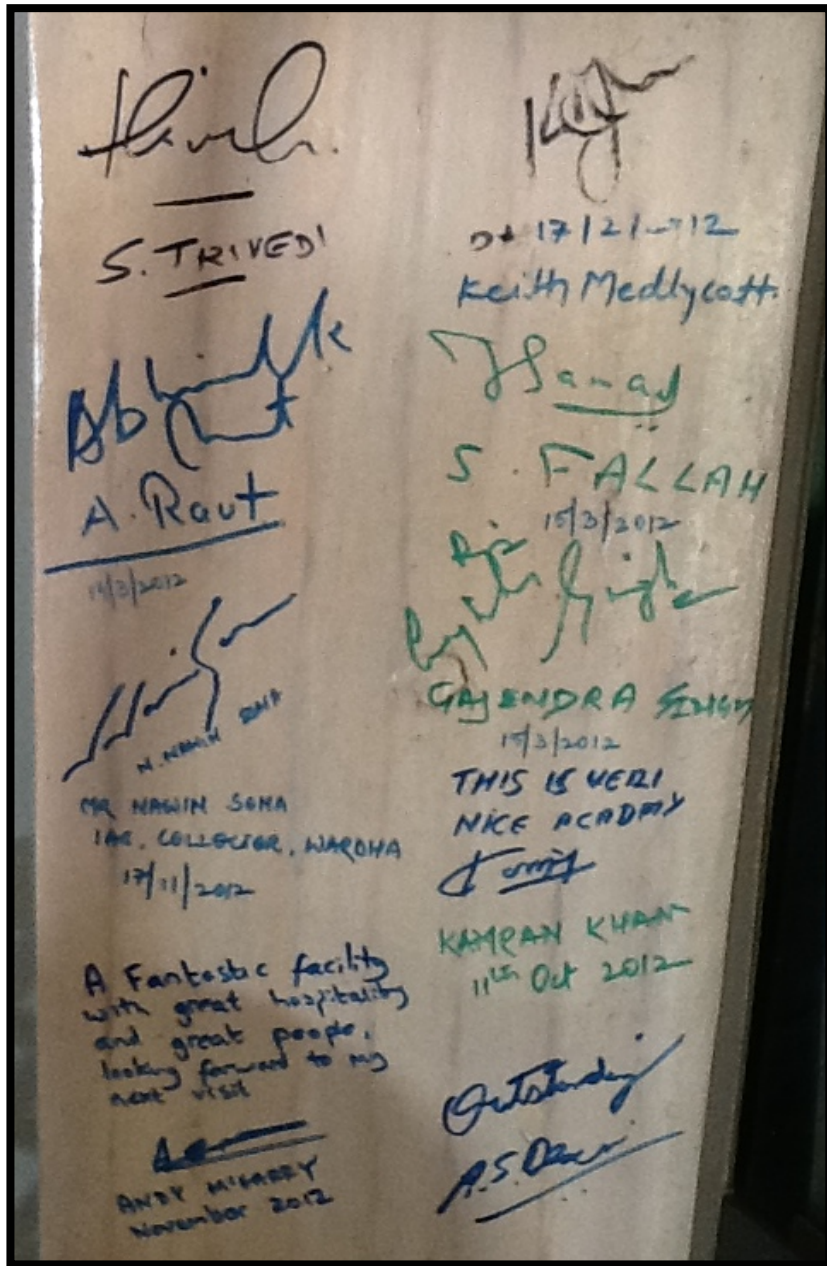 S. TRIVEDI
A. Raut
14/3/2012
N. NAWIN SONA
MR NAWIN SONA
IAS, COLLECTOR, WARDHA
17/11/2012
A Fantastic facility
with great hospitality
and great people,
looking forward to my
next visit
ANDY
November 2012
17/2/2012
Keith Medlycott
S. FALLAH
15/3/2012
GAJENDRA SINGH
15/3/2012
THIS IS VERI
NICE ACADMY
KAMRAN KHAN
11th Oct 2012
Outstanding